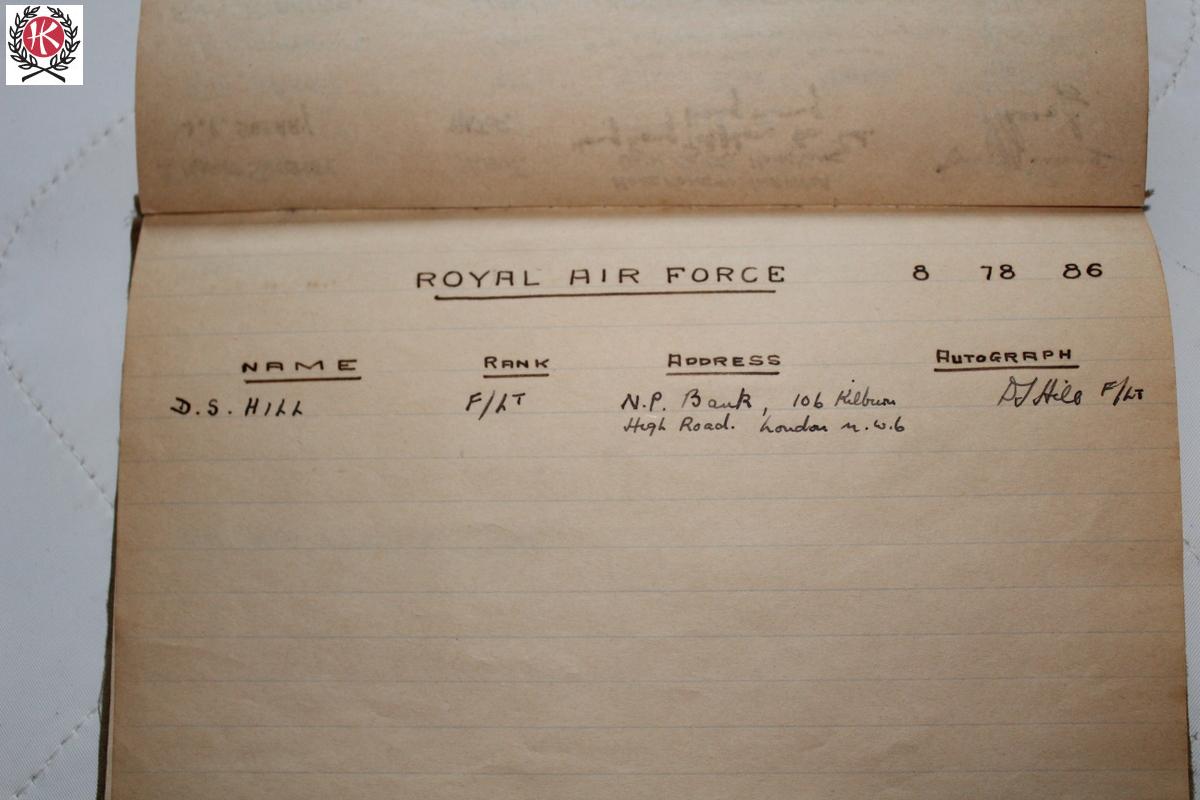 HK
ROYAL AIR FORCE 8 78 86
NAME RANK ADDRESS AUTOGRAPH
D.S. HILL F/LT N.P. Bank, 106 Kilburn DS Hill F/LT
High Road. London N.W.6